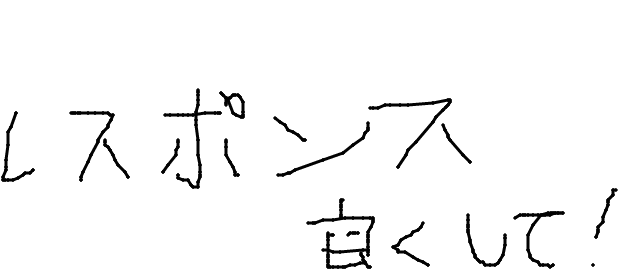 レスポンス
良くして!